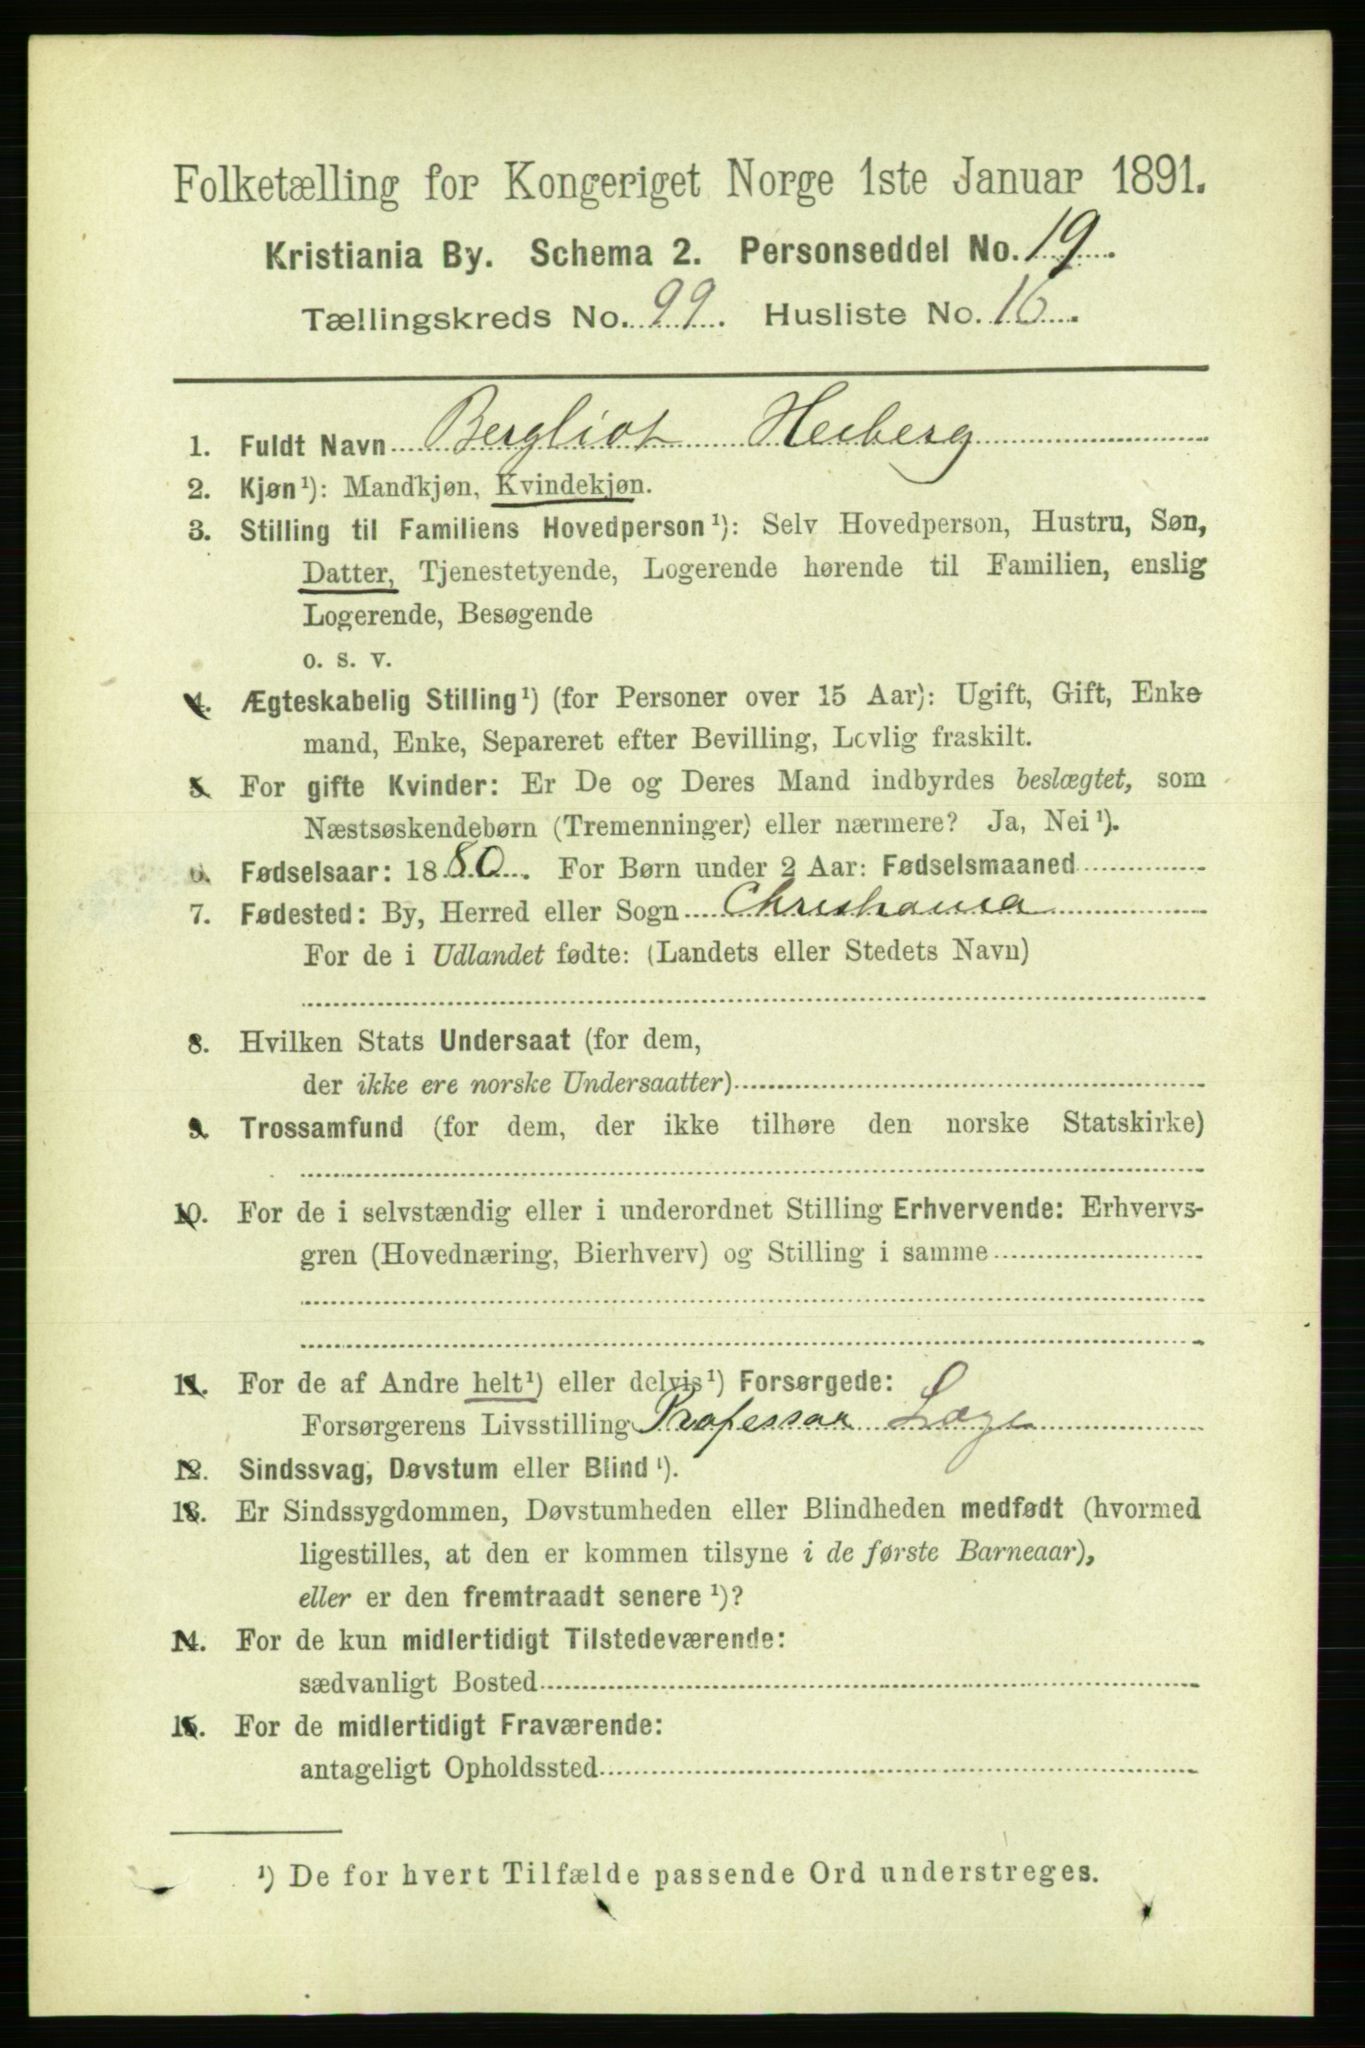 Folketælling for Kongeriget Norge 1ste Januar 1891.
Kristiania By. Schema 2. Personseddel No. 19.
Tællingskreds No. 99. Husliste No. 16.
1. Fuldt Navn Bergliot Heiberg
2. Kjøn¹): Mandkjøn, Kvindekjøn.
3. Stilling til Familiens Hovedperson¹): Selv Hovedperson, Hustru, Søn,
Datter, Tjenestetyende, Logerende hørende til Familien, enslig
Logerende, Besøgende
o. s. v.
4. Ægteskabelig Stilling¹) (for Personer over 15 Aar): Ugift, Gift, Enke
mand, Enke, Separeret efter Bevilling, Lovlig fraskilt.
5. For gifte Kvinder: Er De og Deres Mand indbyrdes beslægtet, som
Næstsøskendebørn (Tremenninger) eller nærmere? Ja, Nei¹).
6. Fødselsaar: 1880. For Børn under 2 Aar: Fødselsmaaned
7. Fødested: By, Herred eller Sogn Christiania
For de i Udlandet fødte: (Landets eller Stedets Navn)
8. Hvilken Stats Undersaat (for dem,
der ikke ere norske Undersaatter)
9. Trossamfund (for dem, der ikke tilhøre den norske Statskirke)
10. For de i selvstændig eller i underordnet Stilling Erhvervende: Erhvervs-
gren (Hovednæring, Bierhverv) og Stilling i samme
11. For de af Andre helt¹) eller delvis¹) Forsørgede:
Forsørgerens Livsstilling Professor Læge
12. Sindssvag, Døvstum eller Blind¹).
13. Er Sindssygdommen, Døvstumheden eller Blindheden medfødt (hvormed
ligestilles, at den er kommen tilsyne i de første Barneaar),
eller er den fremtraadt senere¹)?
14. For de kun midlertidigt Tilstedeværende:
sædvanligt Bosted
15. For de midlertidigt Fraværende:
antageligt Opholdssted
¹) De for hvert Tilfælde passende Ord understreges.